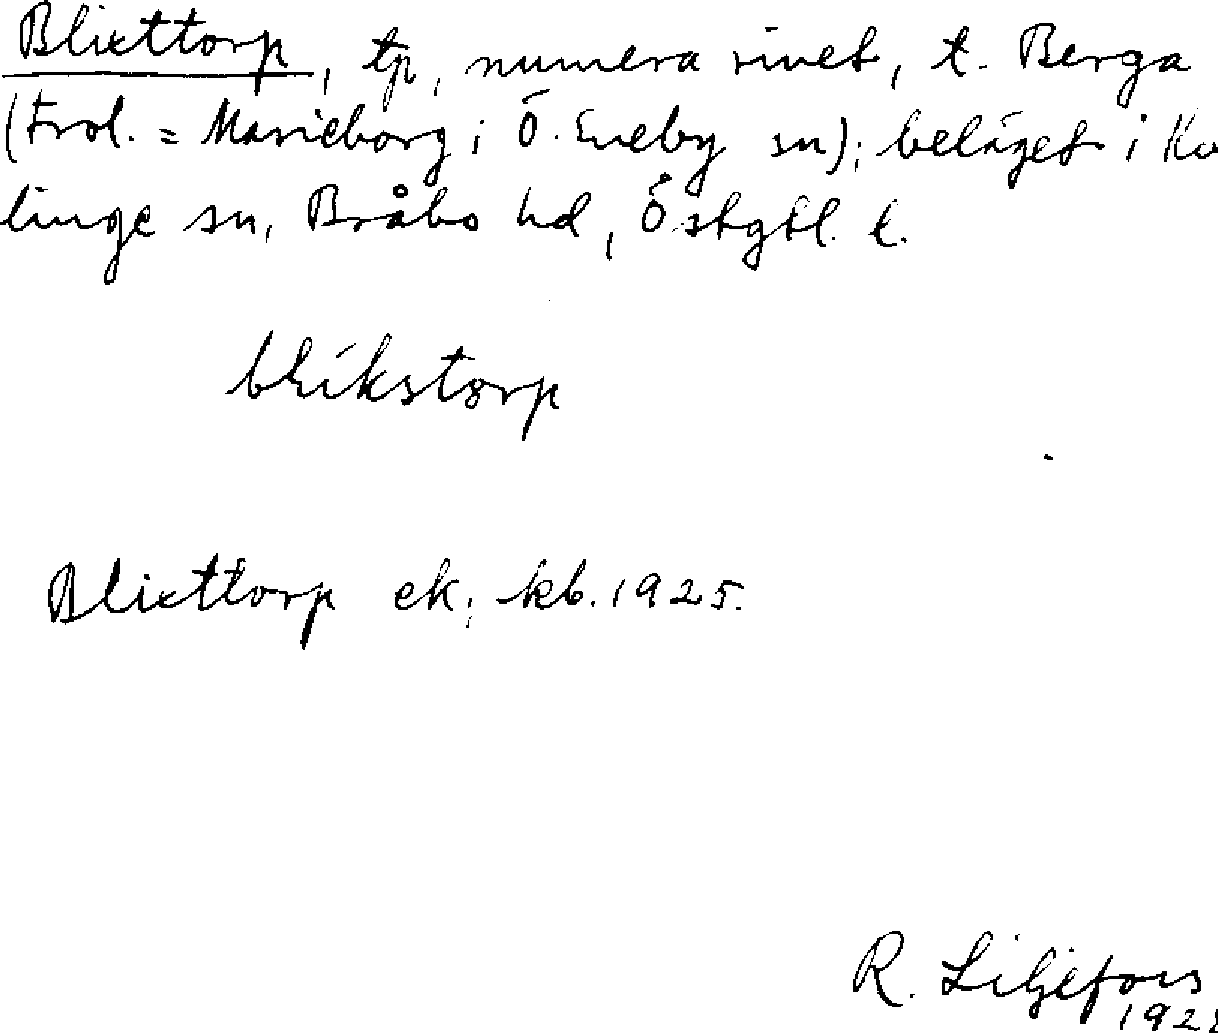 Blixttorp, tp, numera rivet, t. Berga
(trol. = Marieborg i Ö. Eneby sn); beläget i Kv
linge sn, Bråbo hd, Östgtl. l.
blikstorp
Blixttorp ek. kb. 1925.
R. Liljefors
192